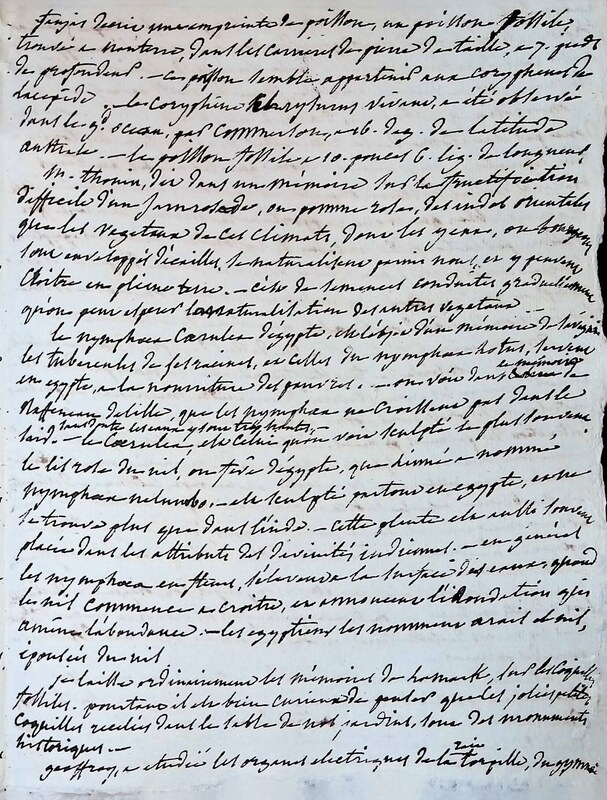 faujas décrit une empreinte de poisson, un poisson fossile,
trouvé a nanterre, dans les carrieres de pierre de taille, a 7. pieds
de profondeur. - ce poisson semble appartenir aux coryphenes de
lacepède. - le coryphène chrysurus vivant, a été observé
dans le gd. ocean, par Commerson, a 16. deg. de latitude
australe. - le poisson fossile a 10. pouces 6. lig. de longueur.
m. thouin, dit dans un mémoire sur la fructification
difficile d'un jamrosade, ou pomme rose, des indes orientales
que les vegetaux de ces climats, dont les yeux, ou bourgeons
sont enveloppés d'écailles, se naturalisent parmi nous, et y peuvent
croitre en pleine terre. - c'est de semences conduites graduellement
qu'on peut esperer la naturalisation des autres vegetaux
le nymphaea Cœrulea d'égypte, est l'objet d'un mémoire de savigny
les tubercules de ses racines, et celles du nymphaea lotus, servent
en egypte, a la nourriture des pauvres. - on voit dans le mémoire de
Raffeneau delille, que les nymphaea ne croissent pas dans le
said. - le Cœrulea, est celui qu'on voit sculpté le plus souvent
le lis rose du nil, ou fève d'égypte, que linné a nommé
nymphaea nelumbo, - est sculpté partout en egypte, et ne
se trouve plus que dans l'inde. - cette plante est aussi souvent
placée dans les attributs des divinités indiennes. - en général
les nymphaea en fleurs, s'élevent a la surface des eaux, quand
le nil commence a croitre, et annoncent l'inondation qui
amène l'abondance. - les egyptiens les nomment arais el nil,
épousées du nil
je laisse ordinairement les mémoires de lamark, sur les coquilles
fossiles. pourtant il est bien curieux de penser que les jolies petites
coquilles recelées dans le sable de nos jardins, sont des monuments
historiques. -
geoffroy, a etudié les organes electriques de la raie torpille, du gymnote